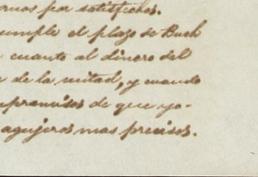 por satisfechos.
cumple el plazo se Buch
cuanto al dinero del
de la mitad, y cuando
de que yo-
agujeros mas precisos.